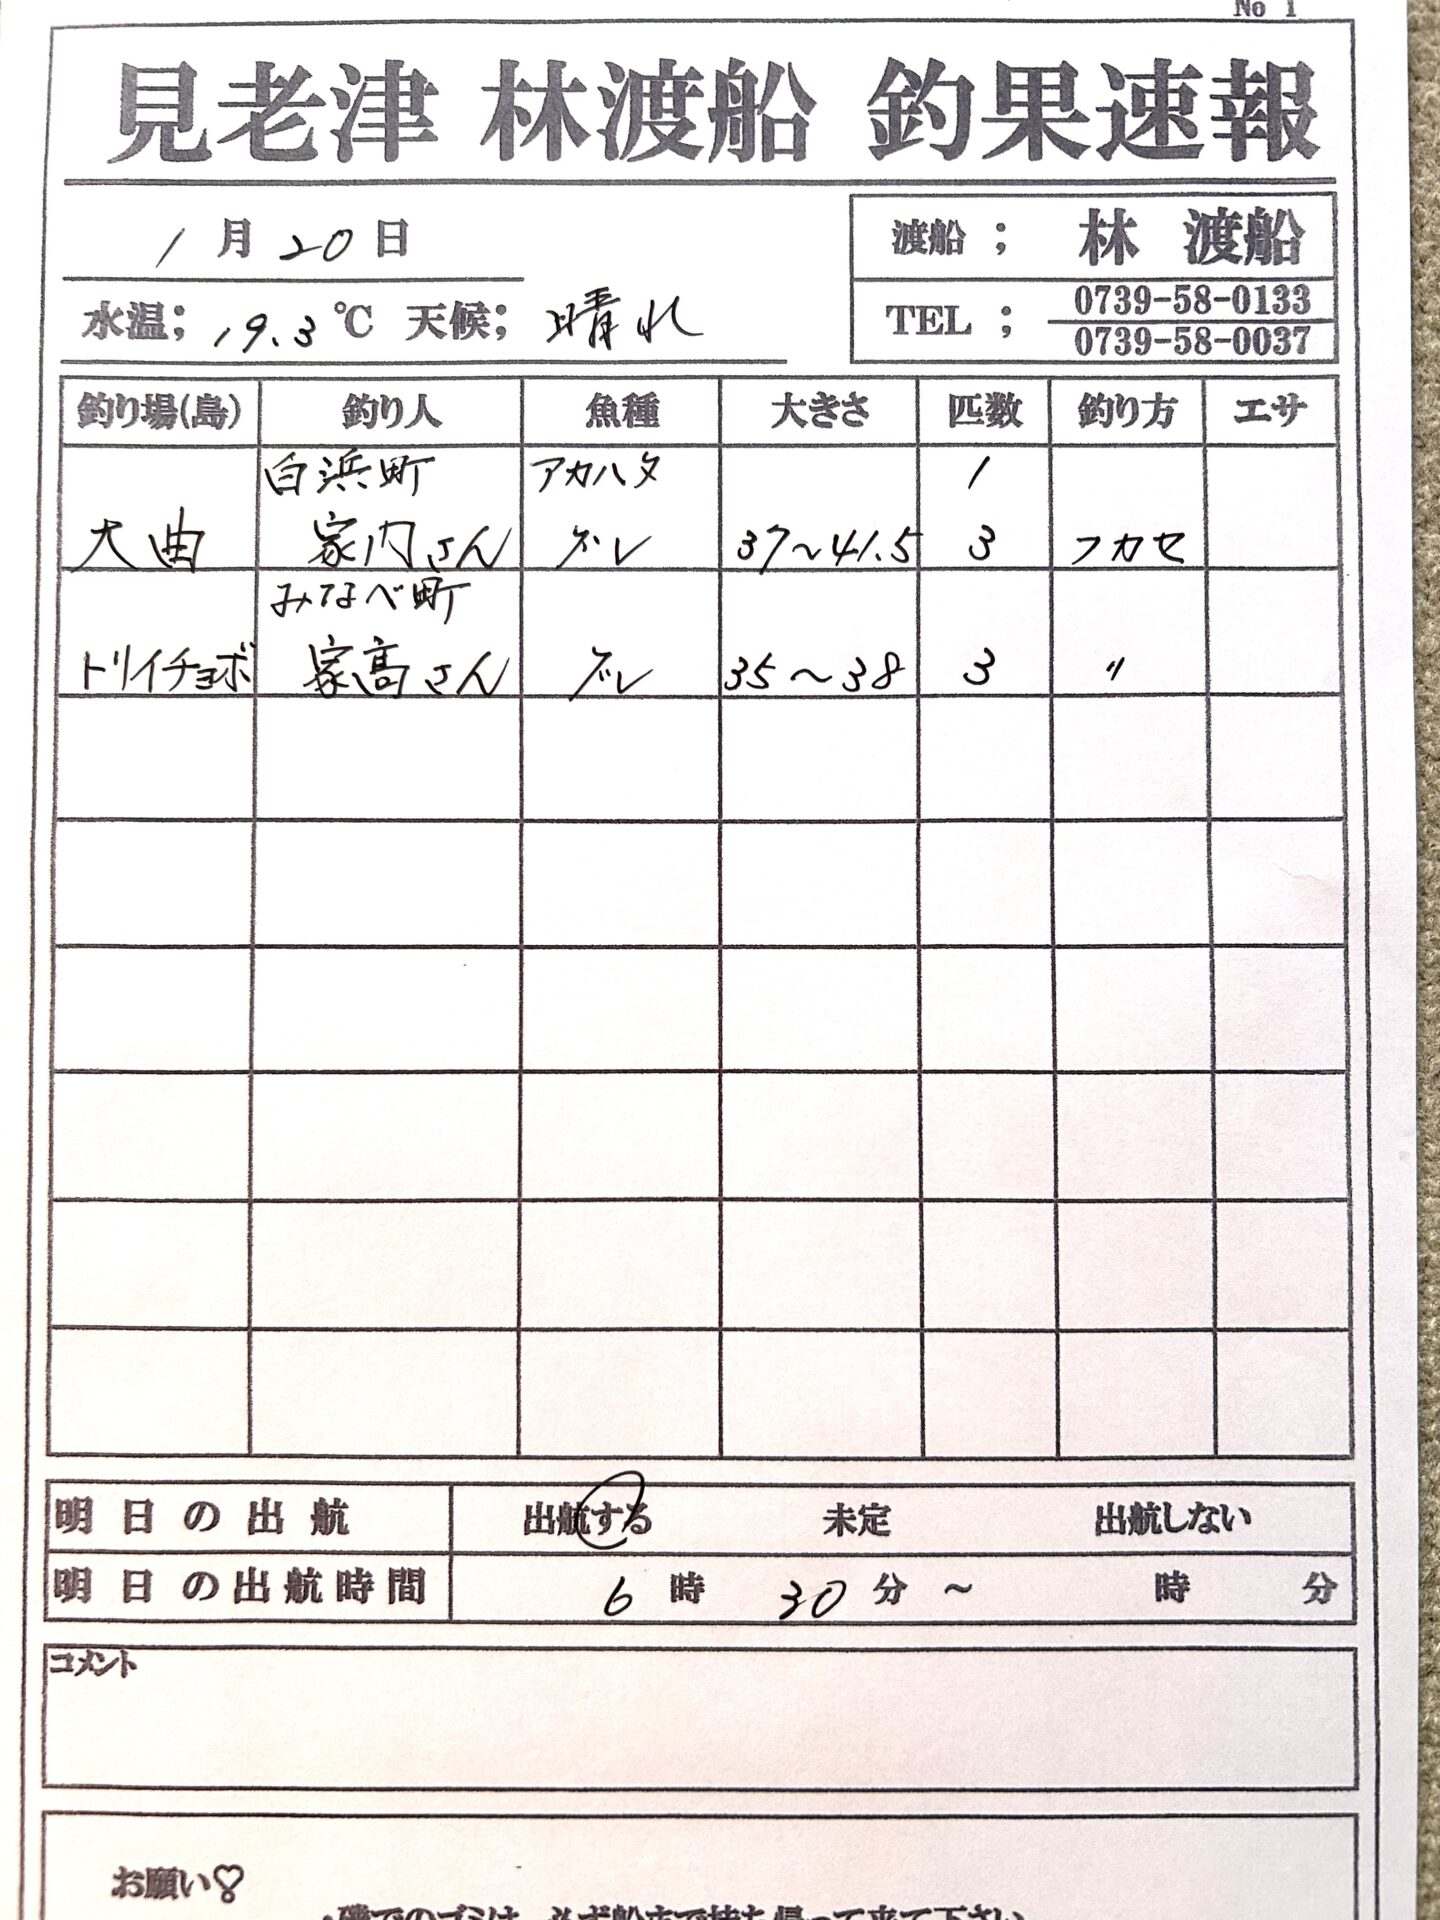 No 1
見老津 林渡船 釣果速報
1月20日
渡船； 林 渡船
水温；19.3℃ 天候；晴れ
TEL； 0739-58-0133
0739-58-0037
釣り場(島) 釣り人 魚種 大きさ 匹数 釣り方 エサ
白浜町 アカハタ 1
大曲 家内さん グレ 37〜41.5 3 フカセ
みなべ町
トリイチョボ 家高さん グレ 35〜38 3 〃
明日の出航 出航する 未定 出航しない
明日の出航時間 6時30分～ 時 分
コメント
お願い♡
・磯でのゴミは、必ず船立で持ち帰って来て下さい